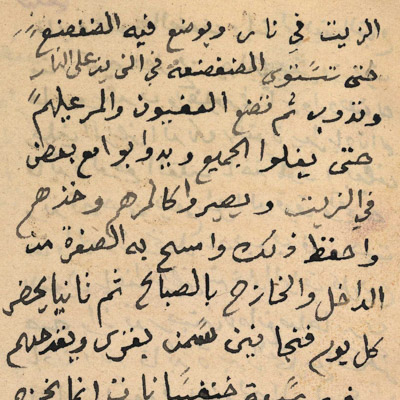 الزيت في نار ويوضع فيه الضفضع
حتى تستوي الضفضعه في الزيت على النار
وتدوب ثم تضع الافيون والمرعيلهم
حتى يغلوا الجميع ويدوابوا مع بعض
في الزيت ويصيروا كالمرهم وخذهم
واحفظ ذلك وامسح به الصفرة من
الداخل والخارج بالصباح ثم ثانيا يحضر
كل يوم فنجانين سمن بقري ويقدحهم